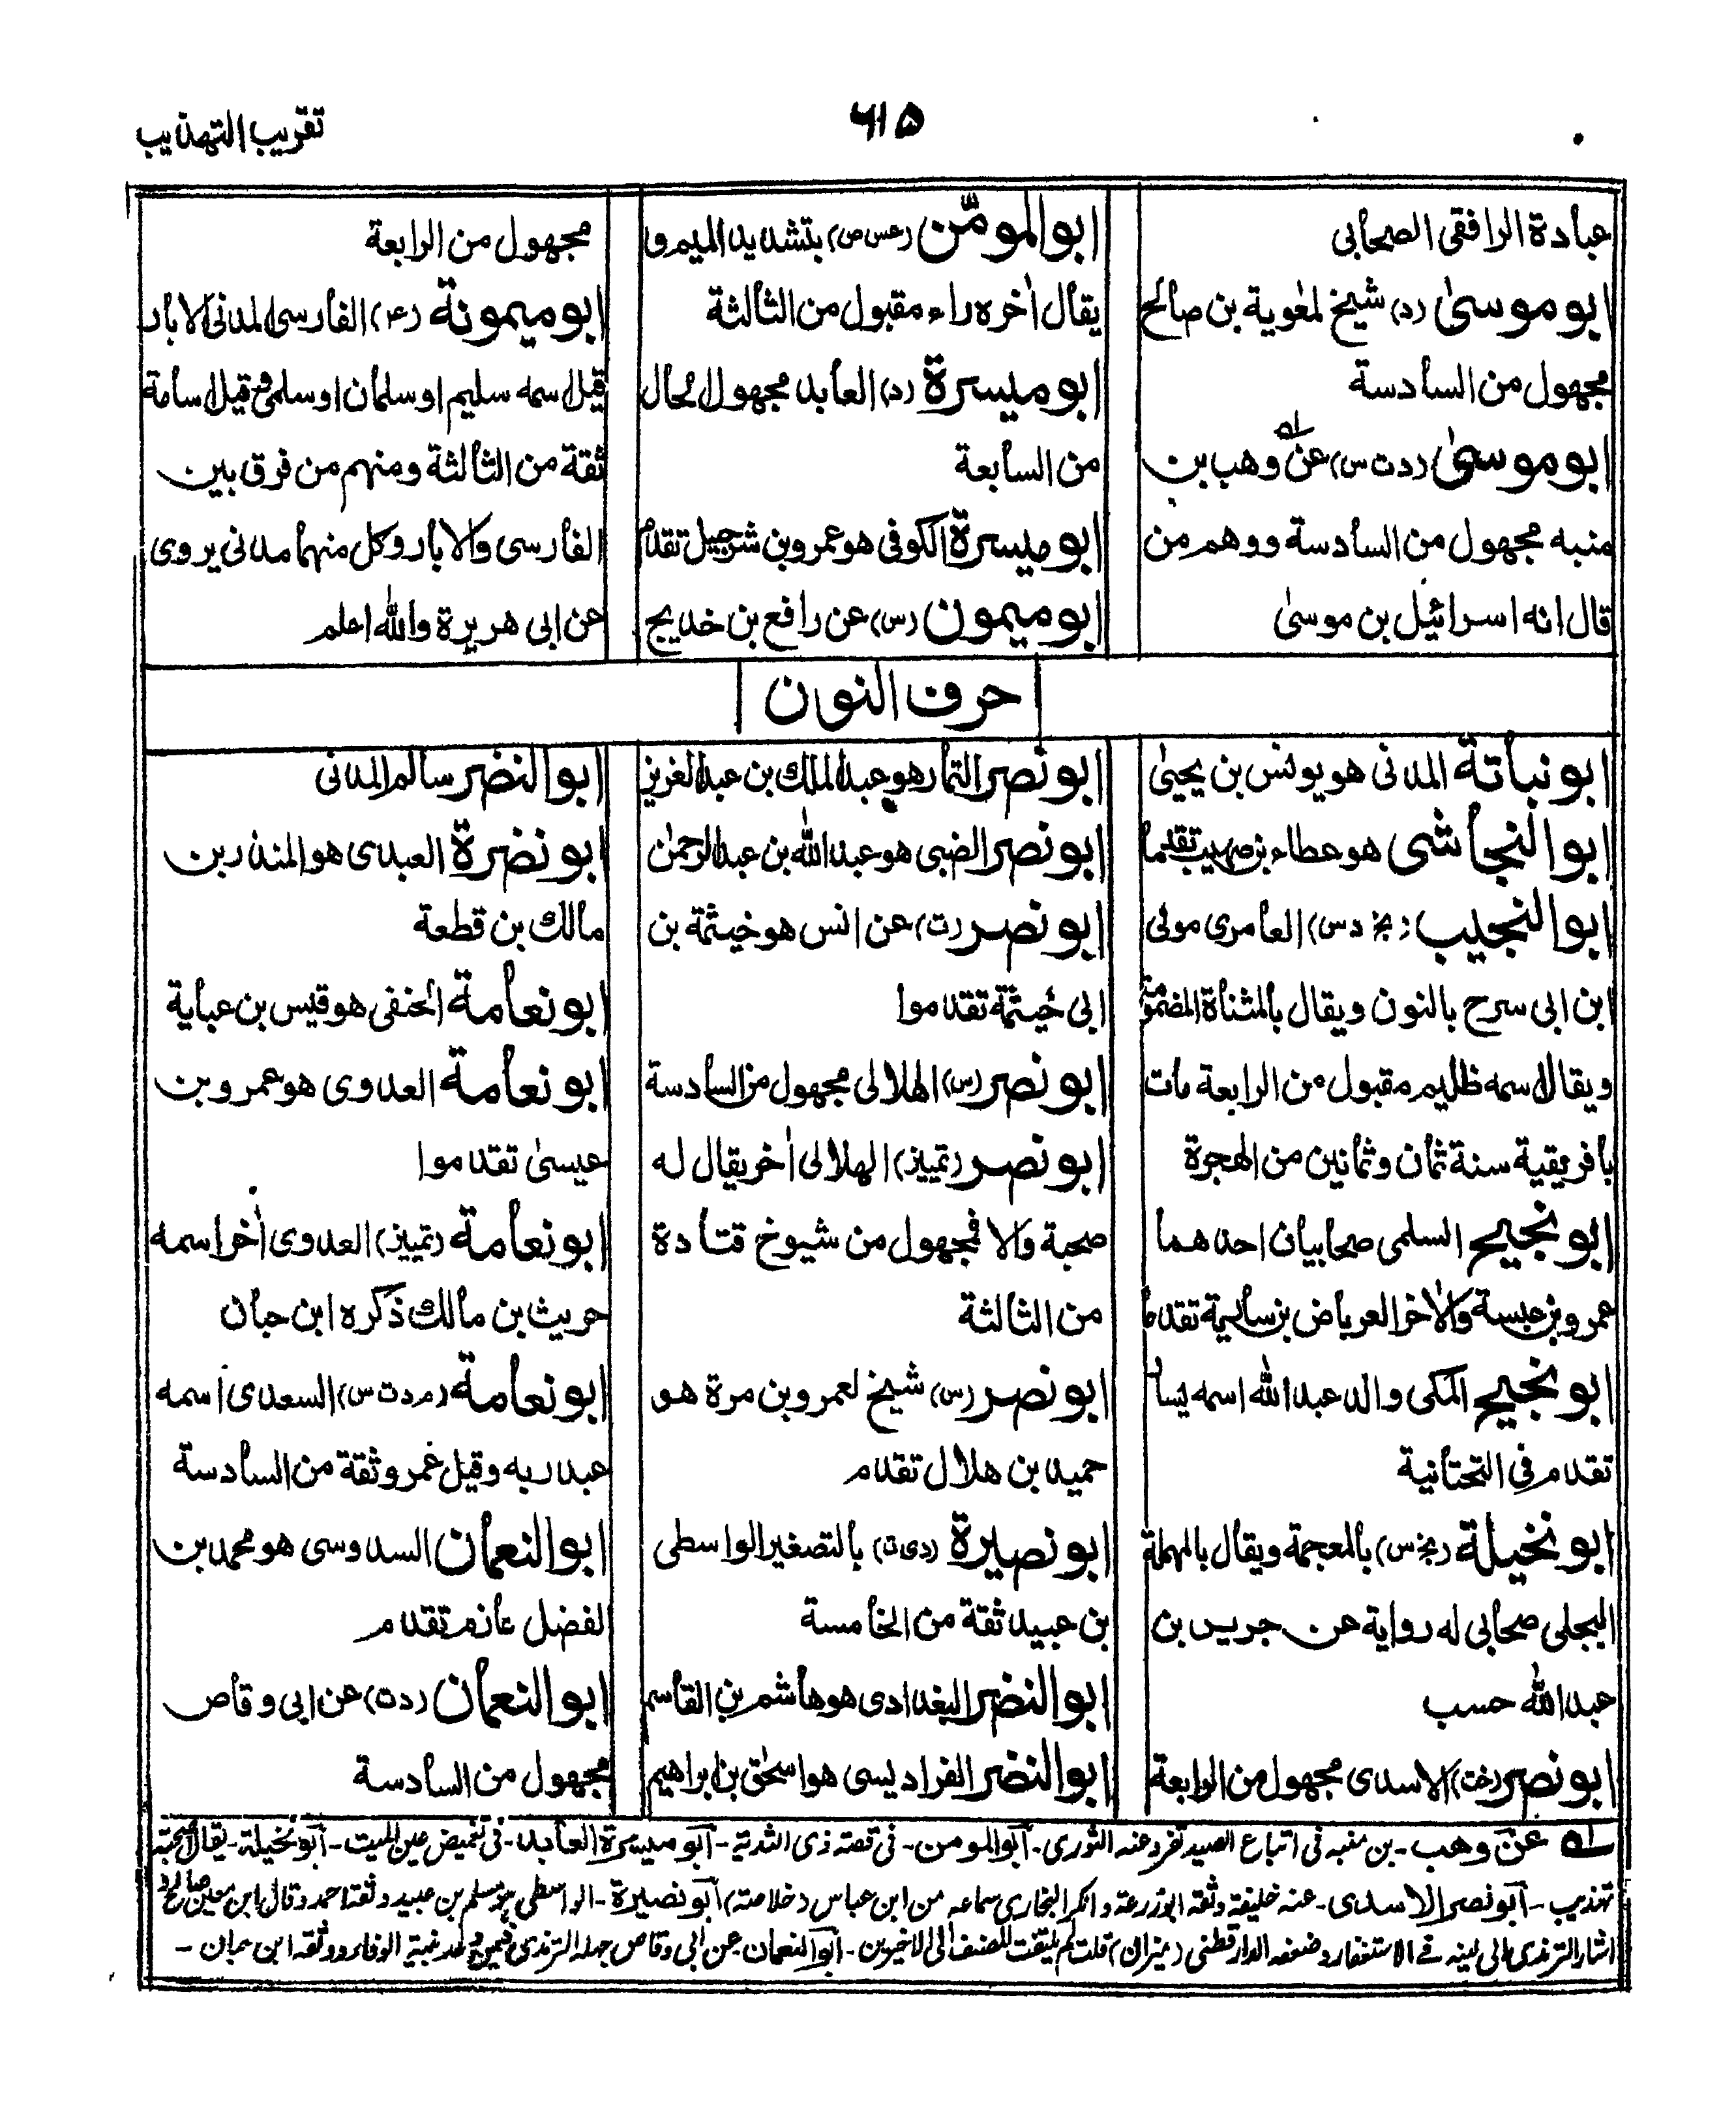 تقريب التهذيب
٦١٥
عبادة الرافقى الصحابى
ابو موسىٰ (د) شيخ لمعٰوية بن صالح
مجهول من السادسة
ابو موسىٰ (د ت س) عن وهب بن
منبه مجهول من السادسة ووهم من
قال انه اسرائيل بن موسىٰ
ابو المومّن (عس ص) بتشديد الميم و
يقال اٰخره راء مقبول من الثالثة
ابو ميسرة (د) العابد مجهول الحال
من السابعة
ابو ميسرة الكوفى هو عمرو بن شرحبيل تقدم
ابو ميمون (س) عن رافع بن خديج
مجهول من الرابعة
ابو ميمونة (٤) الفارسى المدنى الابار
قيل اسمه سليم او سلمان او سلمى وقيل اسامة
ثقة من الثالثة ومنهم من فرق بين
الفارسى والابار وكل منهما مدنى يروى
عن ابى هريرة والله اعلم
حرف النون
ابو نباتة المدنى هو يونس بن يحيىٰ
ابو النجاشى هو عطاء بن صهيب تقدما
ابو النجيب (بخ د س) العامرى مولى
ابن ابى سرح بالنون ويقال بالمثناة المضمومة
ويقال اسمه ظليم مقبول من الرابعة مات
بافريقية سنة ثمان وثمانين من الهجرة
ابو نجيح السلمى صحابيان احدهما
عمرو بن عبسة والاٰخر العرباض بن سارية تقدما
ابو نجيح المكى والد عبد الله اسمه يسار
تقدم فى التحتانية
ابو نخيلة (بخ س) بالمعجمة ويقال بالمهملة
البجلى صحابى له رواية عن جرير بن
عبد الله حسب
ابو نصر (خت) الاسدى مجهول من الرابعة
ابو نصر التمار هو عبد الملك بن عبد العزيز
ابو نصر الضبى هو عبد الله بن عبد الرحمٰن
ابو نصر (ت) عن انس هو خيثمة بن
ابى خيثمة تقدموا
ابو نصر (س) الهلالى مجهول من السادسة
ابو نصر (تمييز) الهلالى اٰخر يقال له
صحبة والا فمجهول من شيوخ قتادة
من الثالثة
ابو نصر (س) شيخ لعمرو بن مرة هو
حميد بن هلال تقدم
ابو نصيرة (د ت) بالتصغير الواسطى
بن عبيد ثقة من الخامسة
ابو النضر البغدادى هو هاشم بن القاسم
ابو النضر الفراديسى هو اسحٰق بن ابراهيم
ابو النضر سالم المدنى
ابو نضرة العبدى هو المنذر بن
مالك بن قطعة
ابو نعامة الحنفى هو قيس بن عباية
ابو نعامة العدوى هو عمرو بن
عيسىٰ تقدموا
ابو نعامة (تمييز) العدوى اٰخر اسمه
حريث بن مالك ذكره ابن حبان
ابو نعامة (م د ت س) السعدى اسمه
عبد ربه وقيل عمرو ثقة من السادسة
ابو النعمان السدوسى هو محمد بن
الفضل عارم تقدم
ابو النعمان (د ت) عن ابى وقاص
مجهول من السادسة
له عن وهب - بن منبه فى اتباع الصيد تفرد عنه الثورى - ابو المومن - فى قصة ذى الثدية - ابو ميسرة العابد - فى تغميض عين الميت - ابو نخيلة - يقال له صحبة
تهذيب - ابو نصر الاسدى - عنه خليفة وثقه ابوزرعة وانكر البخارى سماعه من ابن عباس (خلاصة) ابو نصيرة - الواسطى هو مسلم بن عبيد وثقه احمد وقال ابن معين صالح و
اشار الترمذى الى لينه فى الاستغفار وضعفه الدارقطنى (ميزان) قلت لم يلتفت المصنف الى الاخيرين - ابو النعمان عن ابى وقاص جهله الترمذى فيمن وعد نية الوفاء ووثقه ابن حبان -